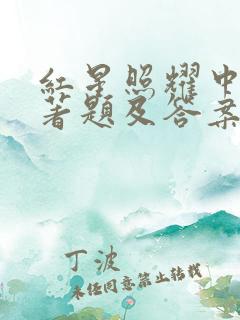 红星照耀中
著题及答案
丁波
未经同意禁止转载